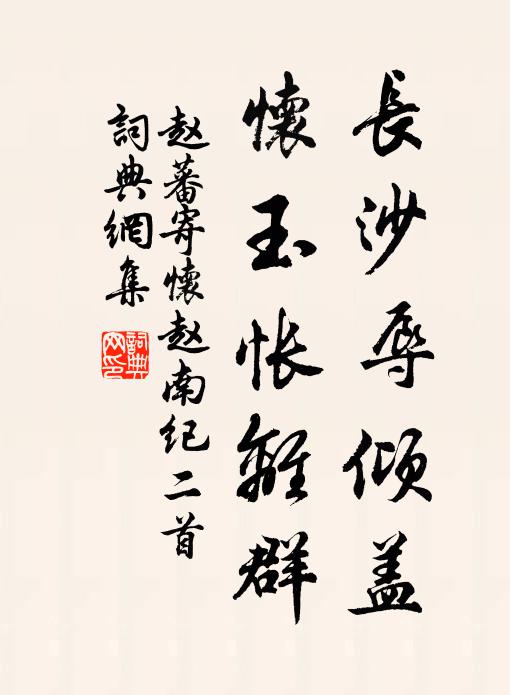 長沙辱傾盖
懷玉悵離群
赵蕃寄懷赵南纪二首
詞典網集
詞典网印